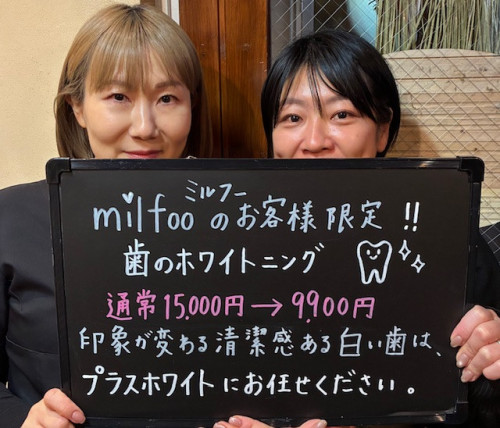 ミルフー
milfooのお客様限定!!
歯のホワイトニング
通常15,000円→9,900円
印象が変わる清潔感ある白い歯は、
プラスホワイトにお任せください。